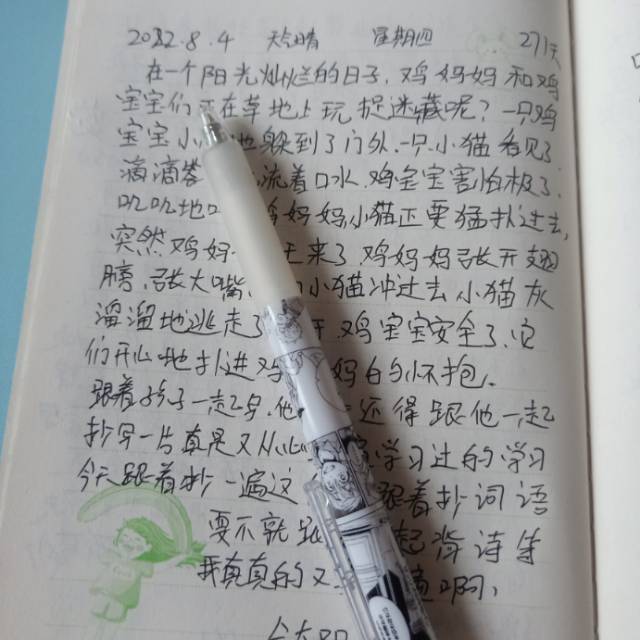 2022.8.4 天气晴 星期四 271天
在一个阳光灿烂的日子,鸡妈妈和鸡
宝宝们正在草地上玩捉迷藏呢?一只鸡
宝宝小 地躲到了门外,一只小猫看见了
滴滴答 流着口水,鸡宝宝害怕极了,
叽叽地 妈妈小猫正要猛扑过去,
突然鸡妈 来了鸡妈妈张开翅
膀,张大嘴 小猫冲过去小猫灰
溜溜地逃走了 鸡宝宝安全了,它
们开心地扑进鸡 妈的怀抱。
跟着孩子一起写,他 还得跟他一起
抄写一片真是又从 学习过的学习
今天跟着抄一遍这 跟着抄词语
要不就 起背诗
我真真的又 啊,